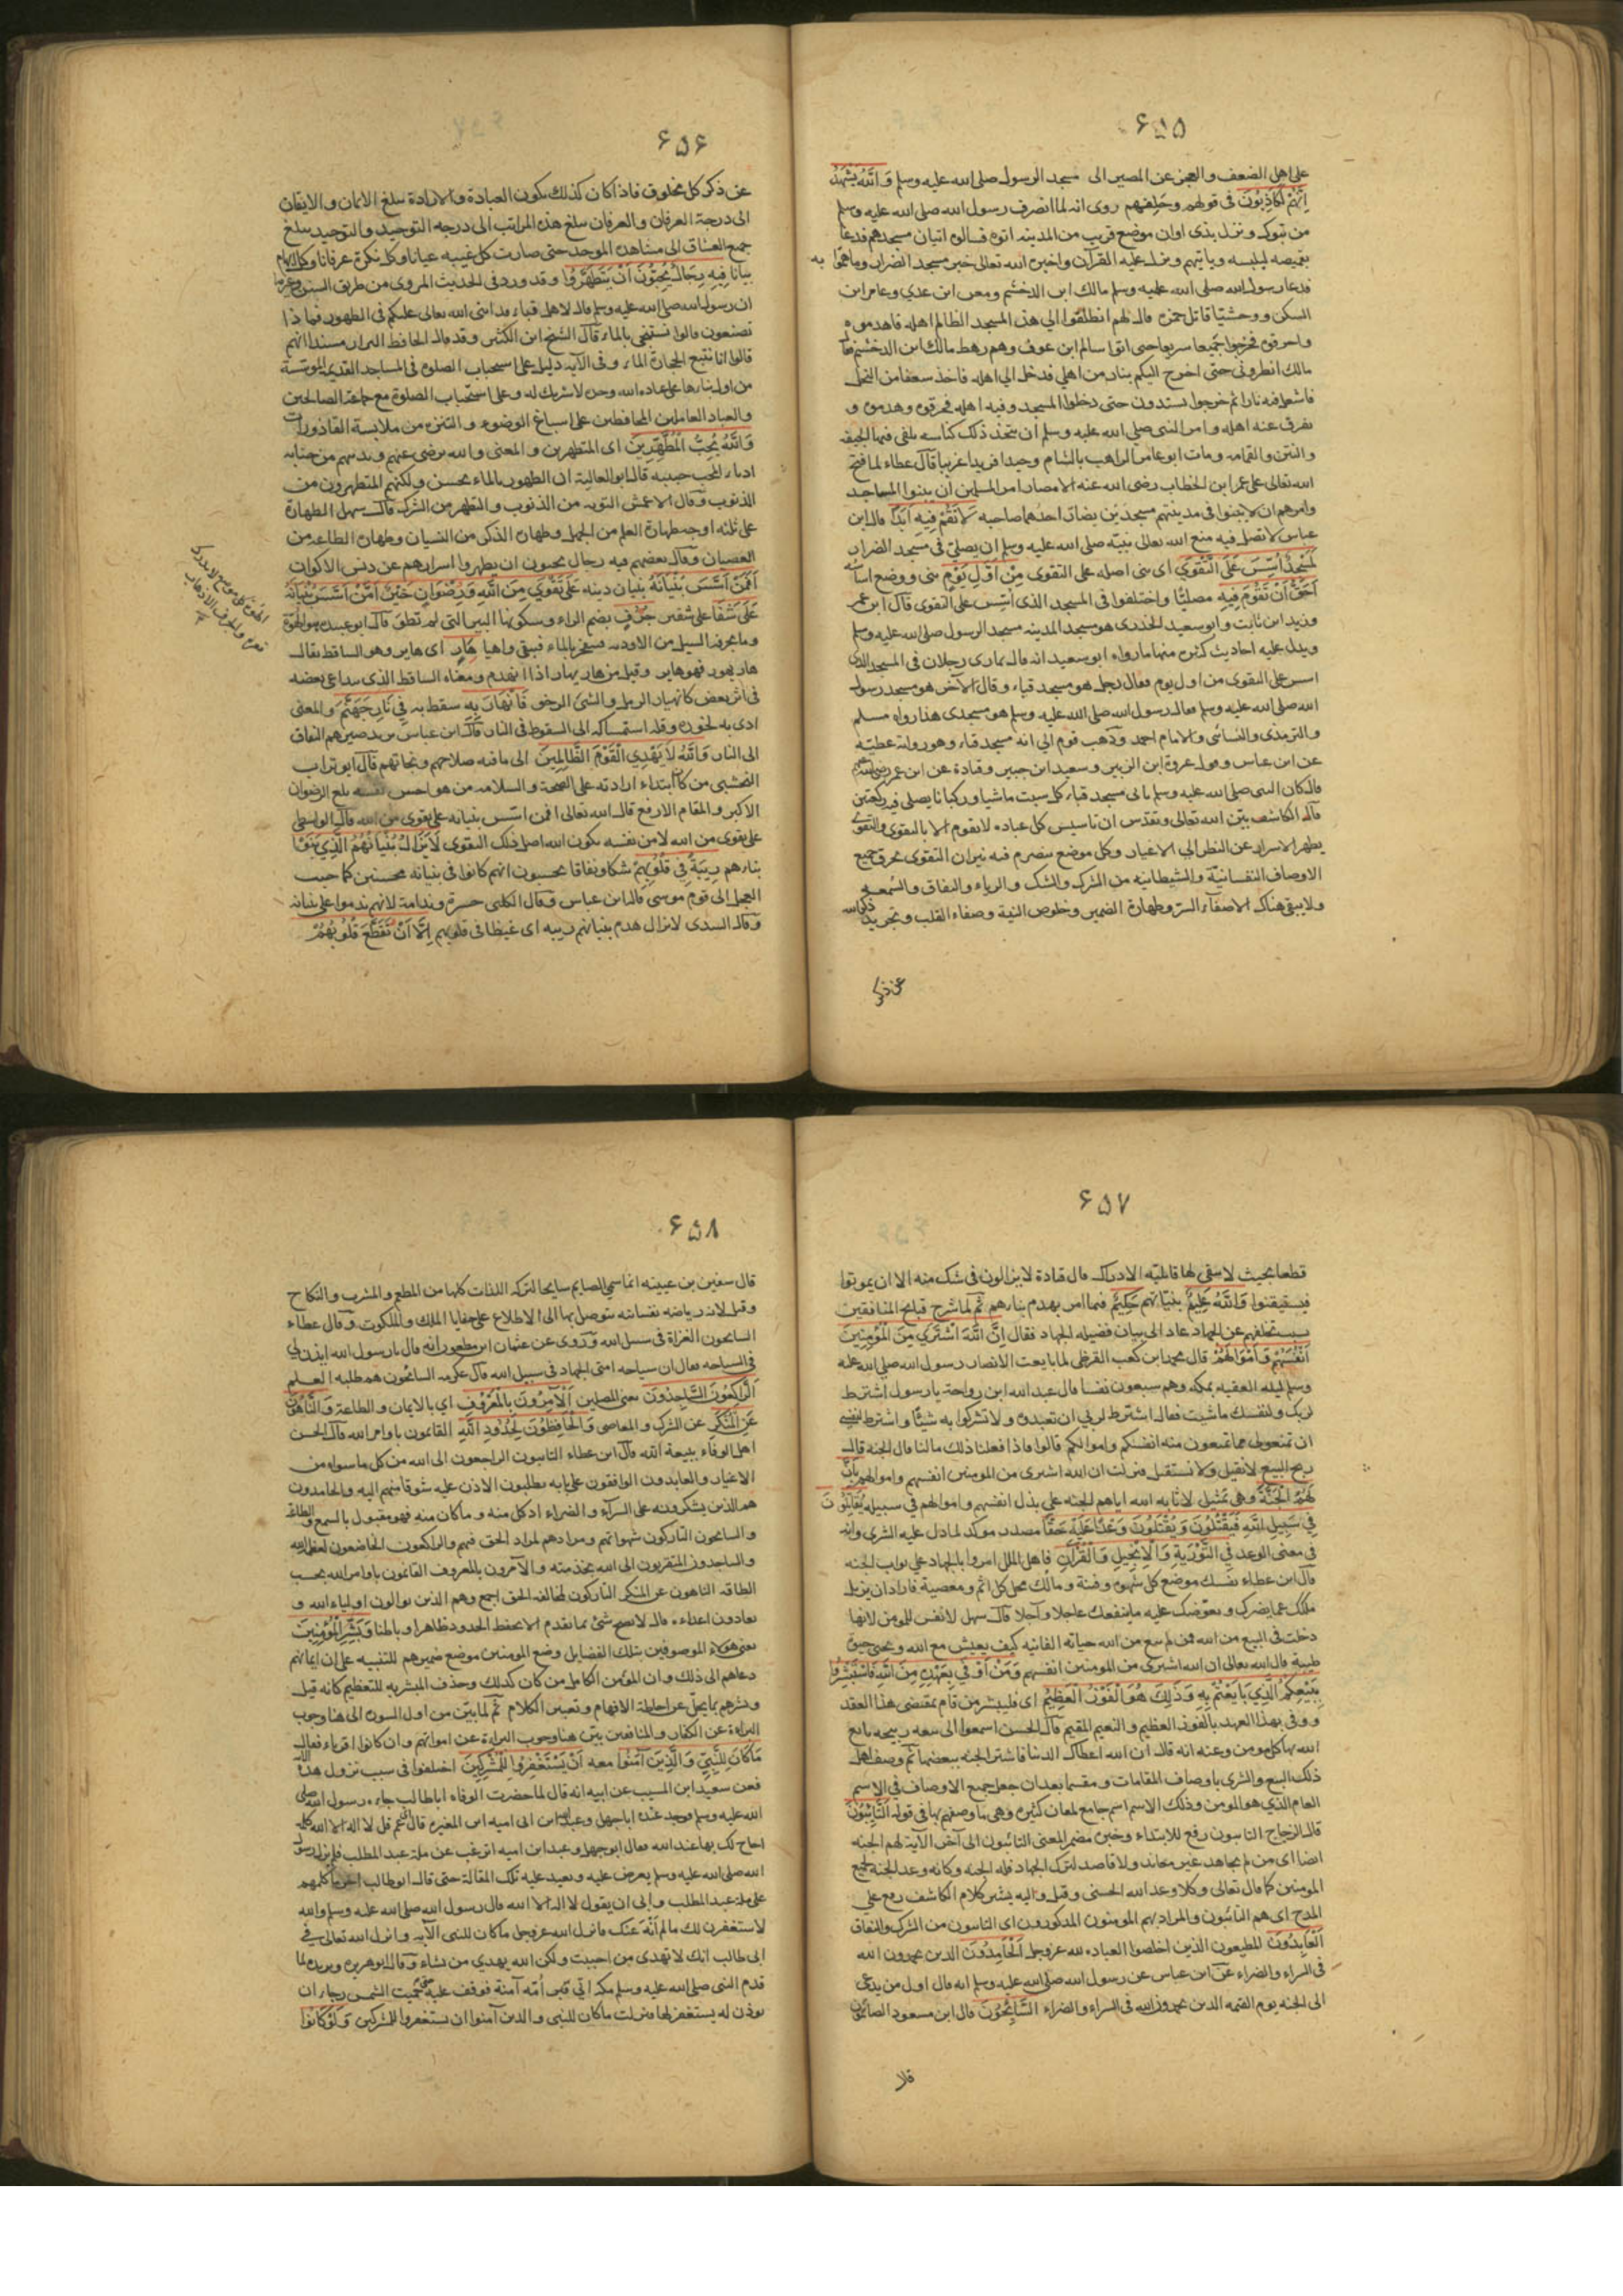 ۶۵۵
على اهل الضعف والعجز عن المصير الى مسجد الرسول صلى الله عليه وسلم وَاللَّهُ يَشْهَدُ
اِنَّهُمْ لَكَاذِبُونَ فى قولهم وحلفهم روى انه لما انصرف رسول الله صلى الله عليه وسلم
من تبوك ونزل بذى اوان موضع قريب من المدينه اتوه فسالوه اتيان مسجدهم فدعا
بقميصه ليلبسه وياتيهم ونزل عليه القرآن واخبره الله تعالى خبر مسجد الضرار وما هموا به
فدعا رسول الله صلى الله عليه وسلم مالك ابن الدخشم ومعن ابن عدي وعامر ابن
السكن ووحشيا قاتل حمزه قال لهم انطلقوا الي هذا المسجد الظالم اهله فاهدموه
واحرقوه فخرجوا جميعا سريعا حتى اتوا سالم ابن عوف وهم رهط مالك ابن الدخشم فقال
مالك انظرونى حتى اخرج اليكم بنار من اهلي فدخل الي اهله فاخذ سعفا من النخل
فاشعل فيه نارا ثم خرجوا يشتدون حتى دخلوا المسجد وفيه اهله فحرقوه وهدموه و
تفرق عنه اهله وامر النبى صلي الله عليه وسلم ان يتخذ ذلك كناسه يلقى فيها الجيفه
والنتن والقمامه ومات ابو عامر الراهب بالشام وحيدا فريدا غريبا قال عطاء لما فتح
الله تعالى على عمر ابن الخطاب رضى الله عنه الامصار امر المسلمين ان يبنوا المساجد
وامرهم ان لا يبنوا فى مدينتهم مسجدين يضار احدهما صاحبه لَا تَقُمْ فِيهِ اَبَدًا قال ابن
عباس لا تصل فيه منع الله تعالى نبيّه صلى الله عليه وسلم ان يصلّى فى مسجد الضرار
لَمَسْجِدٌ اُسِّسَ عَلَى التَّقْوَى اى بنى اصله على التقوى مِنْ اَوَّلِ يَوْمٍ بنى ووضع اساسه
اَحَقُّ اَنْ تَقُومَ فِيهِ مصليًا واختلفوا فى المسجد الذى اسّس على التقوى قال ابن عمر
وزيد ابن ثابت وابو سعيد الخدرى هو مسجد المدينه مسجد الرسول صلى الله عليه وسلم
ويدل عليه احاديث كثيره منها ما رواه ابو سعيد انه قال تمارى رجلان فى المسجد الذى
اسس على التقوى من اول يوم فقال رجل هو مسجد قباء وقال الآخر هو مسجد رسول
الله صلى الله عليه وسلم فقال رسول الله صلى الله عليه وسلم هو مسجدى هذا رواه مسلم
والترمذى والنسائى والامام احمد وذهب قوم الى انه مسجد قباء وهو روايه عطيّه
عن ابن عباس وقول عروة ابن الزبير وسعيد ابن جبير وقتادة عن ابن عمر رضى الله عنهم
قال كان النبى صلى الله عليه وسلم ياتى مسجد قباء كل سبت ماشيا وركبانا يصلى فيه ركعتين
قال الكاشف بيّن الله تعالى وتقدّس ان تاسيس كل عباده لا يقوم الا بالتقوى والتقوى
يطهر الاسرار عن النظر الي الاغيار وكل موضع يتضرم فيه نيران التقوى تحرق جميع
الاوصاف النفسانيّة والشيطانيه من الشرك والشك والرياء والنفاق والسُمعه
ولا يبقى هناك الا صفاء السرّ وطهارة الضمير وخلوص النية وصفاء القلب وتجريد ذكر الله
عن ذكر
۶۵۶
عن ذكر كل مخلوق فاذا كان كذلك يكون العبادة والارادة يبلغ الايمان والايقان
الى درجة العرفان والعرفان يبلغ هذه المراتب الى درجه التوحيد والتوحيد يبلغ
جميع العشاق الى مشاهده الموحد حتى صارت كل غيبه عيانا وكل نكرة عرفانا وكل ابهام
بيانا فِيهِ رِجَالٌ يُحِبُّونَ اَنْ يَتَطَهَّرُوا وقد ورد فى الحديث المروى من طريق السنن وغيرها
ان رسول الله صلى الله عليه وسلم قال لاهل قباء قد اثنى الله تعالى عليكم فى الطهور فما ذا
تصنعون قالوا نستنجى بالماء قال الشيخ ابن الكثير وقد قال الحافظ البزار مسندا انهم
قالوا انا نتبع الحجارة الماء وفى الآيه دليل على استحباب الصلوه فى المساجد القديمه المؤسسة
من اول بنائها على عباده الله وحده لا شريك له وعلى استحباب الصلوة مع جماعة الصالحين
والعباد العاملين المحافظين على اسباغ الوضوء والتنزه من ملابسة القاذورات
وَاللَّهُ يُحِبُّ الْمُطَّهِّرِينَ اى المتطهرين والمعنى والله يرضى عنهم ويدنيهم من جنابه
ادناء المحب حبيبه قال ابو العالية ان الطهور بالماء لحسن ولكنهم المتطهرون من
الذنوب وقال الاعمش التوبه من الذنوب والتطهر من الشرك قال سهل الطهارة
على ثلثه اوجه طهارة العلم من الجهل وطهاره الذكر من النسيان وطهاره الطاعه من
العصيان وقال بعضهم فيه رجال يحبون ان يطهروا اسرارهم عن دنس الاكوان
اَفَمَنْ اَسَّسَ بُنْيَانَهُ بنيان دينه عَلَى تَقْوَى مِنَ اللَّهِ وَرِضْوَانٍ خَيْرٌ اَمْ مَنْ اَسَّسَ بُنْيَانَهُ
عَلَى شَفَا على شفير جُرُفٍ بضم الراء وسكونها البير التى لم تطو قال ابو عبيده هو الهوة
وما يجرفه السيل من الاوديه فينخر بالماء فيبقى واهيا هَارٍ اى هاير وهو الساقط يقال
هار يهور فهو هاير وقيل من هار يهار اذا انهدم ومعناه الساقط الذى يتداعى بعضه
فى اثر بعض كانهيار الرمل والشئ الرخو فَانْهَارَ بِهِ سقط به فِي نَارِ جَهَنَّمَ والمعنى
ادى به لخوره وقله استمساكه الى السقوط فى النار قال ابن عباس يريد صيرهم النفاق
الى النار وَاللَّهُ لَا يَهْدِي الْقَوْمَ الظَّالِمِينَ الى ما فيه صلاحهم ونجاتهم قال ابو تراب
النخشبى من كان ابتداء ارادته على الصحة والسلامه من هواجس نفسه بلغ الرضوان
الاكبر والمقام الارفع قال الله تعالى افمن اسّس بنيانه على تقوى من الله قال الواسطى
على تقوى من الله لا من نفسه يكون الله اصل ذلك التقوى لَا يَزَالُ بُنْيَانُهُمُ الَّذِي بَنَوْا
بناءهم رِيبَةً فِي قُلُوبِهِمْ شكا ونفاقا يحسبون انهم كانوا فى بنيانه محسنين كما حبب
العجل الى قوم موسى قال ابن عباس وقال الكلبى حسرة وندامة لانهم ندموا على بنيانه
وقال السدى لا يزال هدم بنيانهم ريبه اى غيظا فى قلوبهم اِلَّا اَنْ تَقَطَّعَ قُلُوبُهُمْ
۶۵۷
قطعا بحيث لا يبقى لها قابلية الادراك قال قتادة لا يزالون فى شك منه الا ان يموتوا
فيستيقنوا وَاللَّهُ عَلِيمٌ بنيّاتهم حَكِيمٌ فيما امر بهدم بناءهم ثم لما شرح قبايح المنافقين
بتخلفهم عن الجهاد عاد الى بيان فضيله الجهاد فقال اِنَّ اللَّهَ اشْتَرَى مِنَ الْمُؤْمِنِينَ
اَنْفُسَهُمْ وَاَمْوَالَهُمْ قال محمد ابن كعب القرظى لما بايعت الانصار رسول الله صلى الله عليه
وسلم ليله العقبه بمكه وهم سبعون نفسا قال عبد الله ابن رواحة يا رسول اشترط
لربك ولنفسك ما شيت فقال اشترط لربي ان تعبدوه ولا تشركوا به شيئا واشترط لنفسى
ان تمنعونى مما تمنعون منه انفسكم واموالكم قالوا فاذا فعلنا ذلك ما لنا قال الجنه قالوا
ربح البيع لا نقيل ولا نستقيل فنزلت ان الله اشترى من المومنين انفسهم واموالهم بِاَنَّ
لَهُمُ الْجَنَّةَ وهى تمثيل لاثابه الله اياهم الجنه على بذل انفسهم واموالهم في سبيله يُقَاتِلُونَ
فِي سَبِيلِ اللَّهِ فَيَقْتُلُونَ وَيُقْتَلُونَ وَعْدًا عَلَيْهِ حَقًّا مصدر موكد لما دل عليه الشرى وانه
فى معنى الوعد فِي التَّوْرَيةِ وَالْاِنْجِيلِ وَالْقُرْآنِ فاهل الملل امروا بالجهاد علي ثواب الجنه
قال ابن عطاء نفسك موضع كل شهوه وفتنة ومالك محل كل اثم ومعصية فاراد ان يزيل
ملكك عما يضرك ويعوّضك عليه ما ينفعك عاجلا وآجلا قال سهل لا نفس للمومن لانها
دخلت فى البيع من الله فمن لم يبع من الله حياته الفانيه كيف يعيش مع الله ويحيى حيوة
طيبة قال الله تعالى ان الله اشترى من المومنين انفسهم وَمَنْ اَوْفَى بِعَهْدِهِ مِنَ اللَّهِ فَاسْتَبْشِرُوا
بِبَيْعِكُمُ الَّذِي بَايَعْتُمْ بِهِ وَذَلِكَ هُوَ الْفَوْزُ الْعَظِيمُ اى فليبشر من قام بمقتضى هذا العقد
ووفى بهذا العهد بالفوز العظيم والنعيم المقيم قال الحسن اسمعوا الى بيعه ربيحه بايع
الله بها كل مومن وعنه انه قال ان الله اعطاك الدنيا فاشتر الجنه ببعضها ثم وصف اهل
ذلك البيع والشرى باوصاف المقامات ومقسما بعد ان جعل جميع الاوصاف في الاسم
العام الذي هو المومن وذلك الاسم اسم جامع لمعان كثيره وهى ما وصفهم بها فى قوله التَّائِبُونَ
قال الزجاج التائبون رفع للابتداء وخبره مضمر المعنى التائبون الى آخر الآية لهم الجنه
ايضا اى من لم يجاهد غير معاند ولا قاصد لترك الجهاد فله الجنه وكانه وعد الجنه لجميع
المومنين كما قال تعالى وكلا وعد الله الحسنى وقيل واليه يشير كلام الكاشف رفع على
المدح اى هم التائبون والمراد بهم المومنون المذكورون اى التائبون من الشرك والنفاق
الْعَابِدُونَ المطيعون الذين اخلصوا العباده لله عزوجل الْحَامِدُونَ الذين يحمدون الله
فى السراء والضراء عن ابن عباس عن رسول الله صلى الله عليه وسلم انه قال اول من يدعى
الى الجنه يوم القيمه الذين يحمدون الله فى السراء والضراء السَّائِحُونَ قال ابن مسعود الصائمون
قال
۶۵۸
قال سفين بن عيينه انما سمي الصايم سايحا لتركه اللذات كلها من المطعم والمشرب والنكاح
وقيل لانه رياضه نفسانيه يتوصل بها الى الاطلاع على خفايا الملك والملكوت وقال عطاء
السايحون الغزاة فى سبيل الله وروى عن عثمان ابن مظعون انه قال يا رسول الله ايذن لي
فى السياحه فقال ان سياحه امتى الجهاد فى سبيل الله قال عكرمه السائحون هم طلبه العلم
الرَّاكِعُونَ السَّاجِدُونَ يعنى المصلين الْآمِرُونَ بِالْمَعْرُوفِ اي بالايمان والطاعة وَالنَّاهُونَ
عَنِ الْمُنْكَرِ عن الشرك والمعاصى وَالْحَافِظُونَ لِحُدُودِ اللَّهِ القائمون باوامر الله قال الحسن
اهل الوفاء ببيعة الله قال ابن عطاء التائبون الراجعون الى الله من كل ما سواه من
الاغيار والعابدون الواقفون على بابه يطلبون الاذن عليه شوقا منهم اليه والحامدون
هم الذين يشكرونه على السرآء والضراء اذ كل منه وما كان منه فهو مقبول بالسمع والطاعة
والسائحون التاركون شهواتهم ومرادهم لمراد الحق فيهم والراكعون الخاضعون لعظمة الله
والساجدون المتقربون الى الله بخدمته والآمرون بالمعروف القائمون باوامر الله بحسب
الطاقه الناهون عن المنكر التاركون لمخالفه الحق اجمع وهم الذين يوالون اولياء الله و
يعادون اعداءه قال لا يصح شئ مما تقدم الا بحفظ الحدود ظاهرا وباطنا وَبَشِّرِ الْمُؤْمِنِينَ
يعنى هؤلاء الموصوفين بتلك الفضايل وضع المومنين موضع ضميرهم للتنبيه على ان ايمانهم
دعاهم الى ذلك وان المؤمن الكامل من كان كذلك وحذف المبشر به للتعظيم كانه قيل
وبشرهم بما يجلّ عن احاطة الافهام وتعبير الكلام ثم لما بيّن من اول السوره الى هنا وجوب
البراءة عن الكفار والمنافقين بيّن هنا وجوب البراءة عن امواتهم وان كانوا اقرباء فقال
مَا كَانَ لِلنَّبِيِّ وَالَّذِينَ آمَنُوا معه اَنْ يَسْتَغْفِرُوا لِلْمُشْرِكِينَ اختلفوا فى سبب نزول هذه الآية
فعن سعيد ابن المسيب عن ابيه انه قال لما حضرت الوفاه ابا طالب جاءه رسول الله صلى
الله عليه وسلم فوجد عنده ابا جهل وعبد الله ابن ابى اميه ابن المغيره فقال اى عم قل لا اله الا الله كلمة
احاج لك بها عند الله فقال ابو جهل وعبد ابن اميه اترغب عن ملة عبد المطلب فلم يزل رسول
الله صلى الله عليه وسلم يعرض عليه ويعيد عليه تلك المقالة حتى قال ابو طالب اخر ما كلمهم
على ملة عبد المطلب وابى ان يقول لا اله الا الله قال رسول الله صلى الله عليه وسلم والله
لاستغفرن لك ما لم اُنْهَ عنك فانزل الله عزوجل ما كان للنبى الآيه وانزل الله تعالى في
ابى طالب انك لا تهدى من احببت ولكن الله يهدي من يشاء وقال ابو هريره وبريده لما
قدم النبى صلى الله عليه وسلم مكه اتى قبر اُمّه آمنة فوقف عليه حتى حميت الشمس رجاء ان
يوذن له يستغفر لها فنزلت ما كان للنبى والذين آمنوا ان يستغفروا للمشركين وَلَوْ كَانُوا